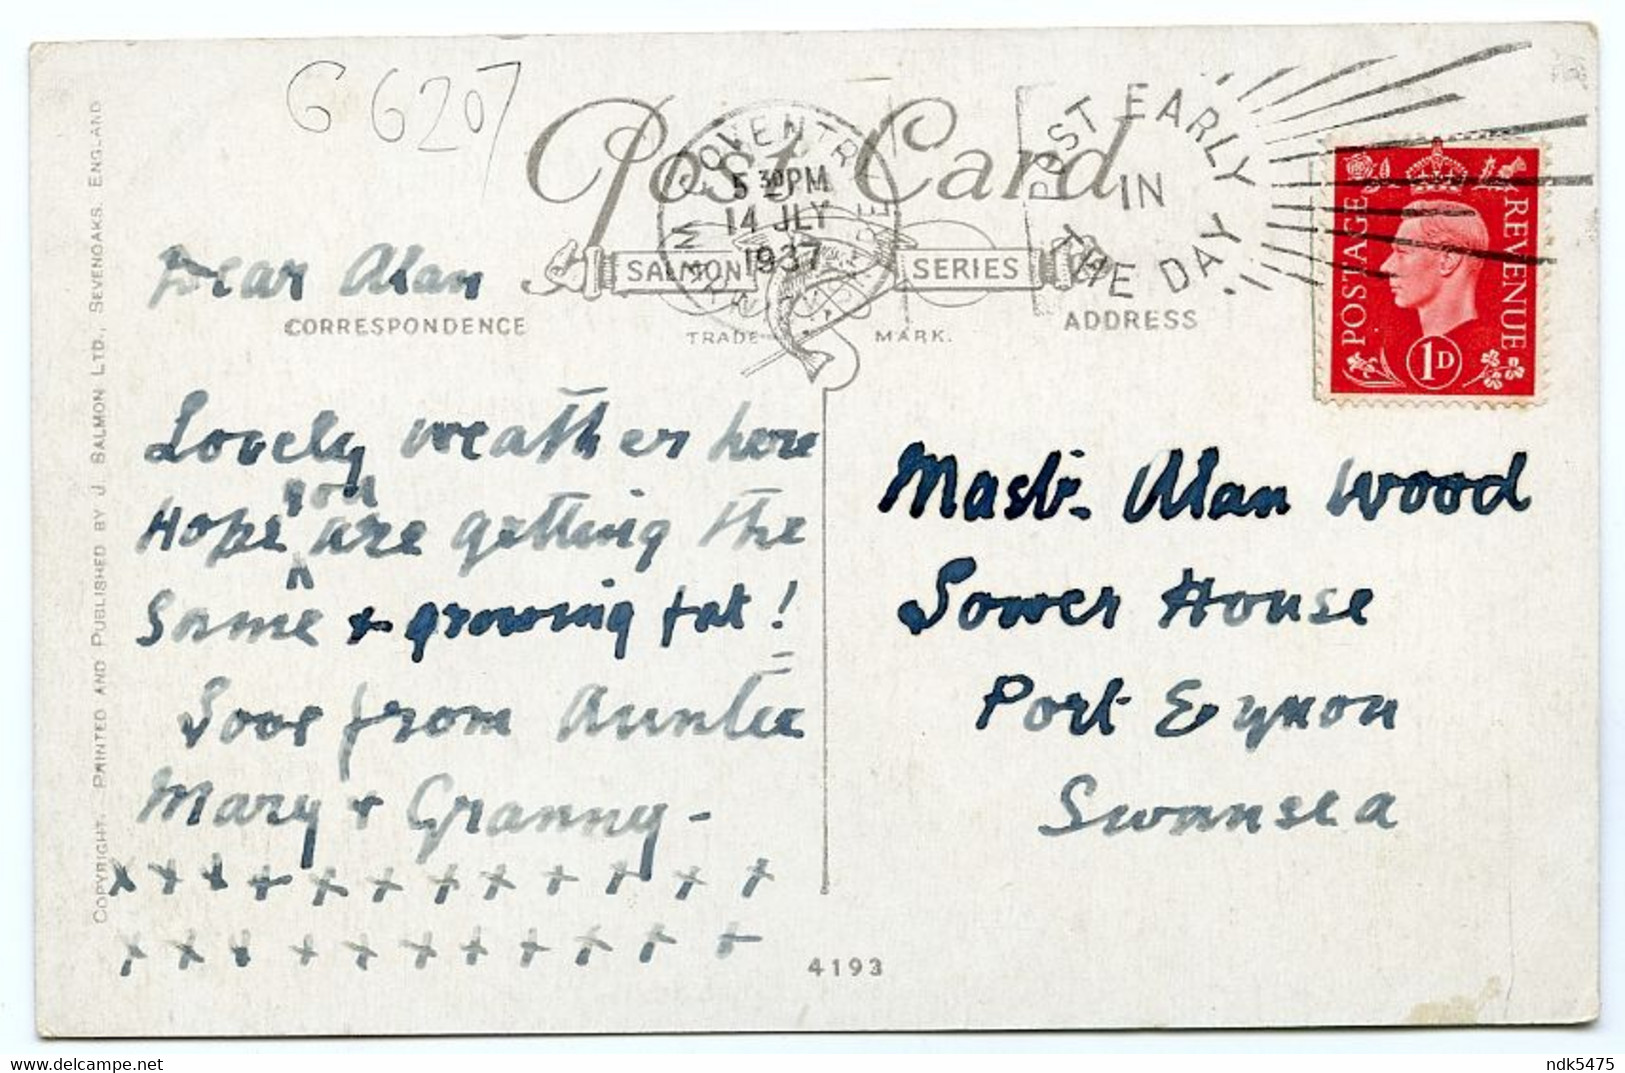 G 6207
Post Card
COVENTRY
WARWICKSHIRE
5 30 PM
14 JLY
1937
POST EARLY
IN
THE DAY
POSTAGE
REVENUE
1D
SALMON
SERIES
TRADE
MARK.
CORRESPONDENCE
ADDRESS
Dear Alan
Lovely weather here
Hope you are getting the
same + growing fat!
Love from Auntie
Mary + Granny-
x x x x x x x x x x x x
x x x x x x x x x x x
Mastr. Alan Wood
Sower House
Port Eynon
Swansea
4193
COPYRIGHT. PRINTED AND PUBLISHED BY J. SALMON LTD., SEVENOAKS, ENGLAND
ndk5475